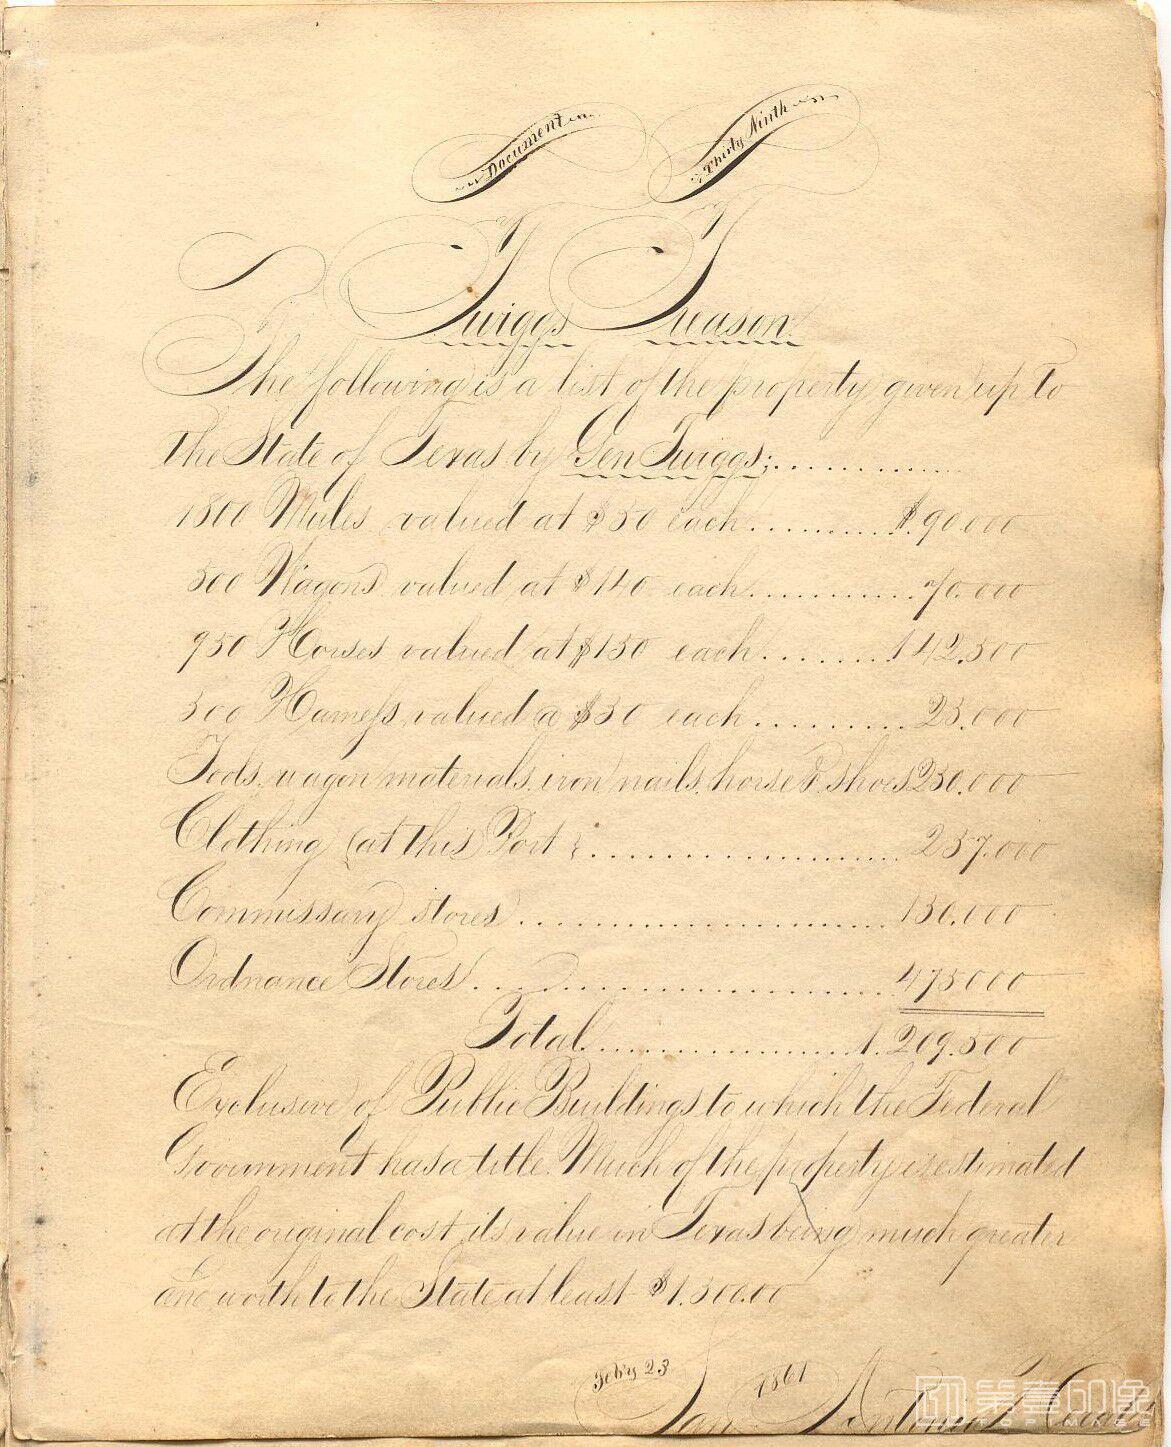 Document
Thirty Ninth
Twiggs Treason
The following is a list of the property given up to
the State of Texas by Gen Twiggs;..............
1800 Mules valued at $50 each.......... $.90.000
500 Wagons valued at $140 each........... 70.000
950 Horses valued at $150 each......... 142.500
500 Harness valued @ $50 each.......... 25.000
Tools, wagon materials, iron nails, horse & shoes 250.000
Clothing (at this) Port .................. 257.000
Commissary stores ...................... 150.000
Ordnance Stores ........................ 475000
Total................. 1.209.500
Exclusive of Public Buildings to which the Federal
Government has a title. Much of the property is estimated
at the original cost, its value in Texas being much greater
and worth to the State at least $1.500.00
Feb'y 23 1861
San Antonio
第壹印像
TOPIMAGE